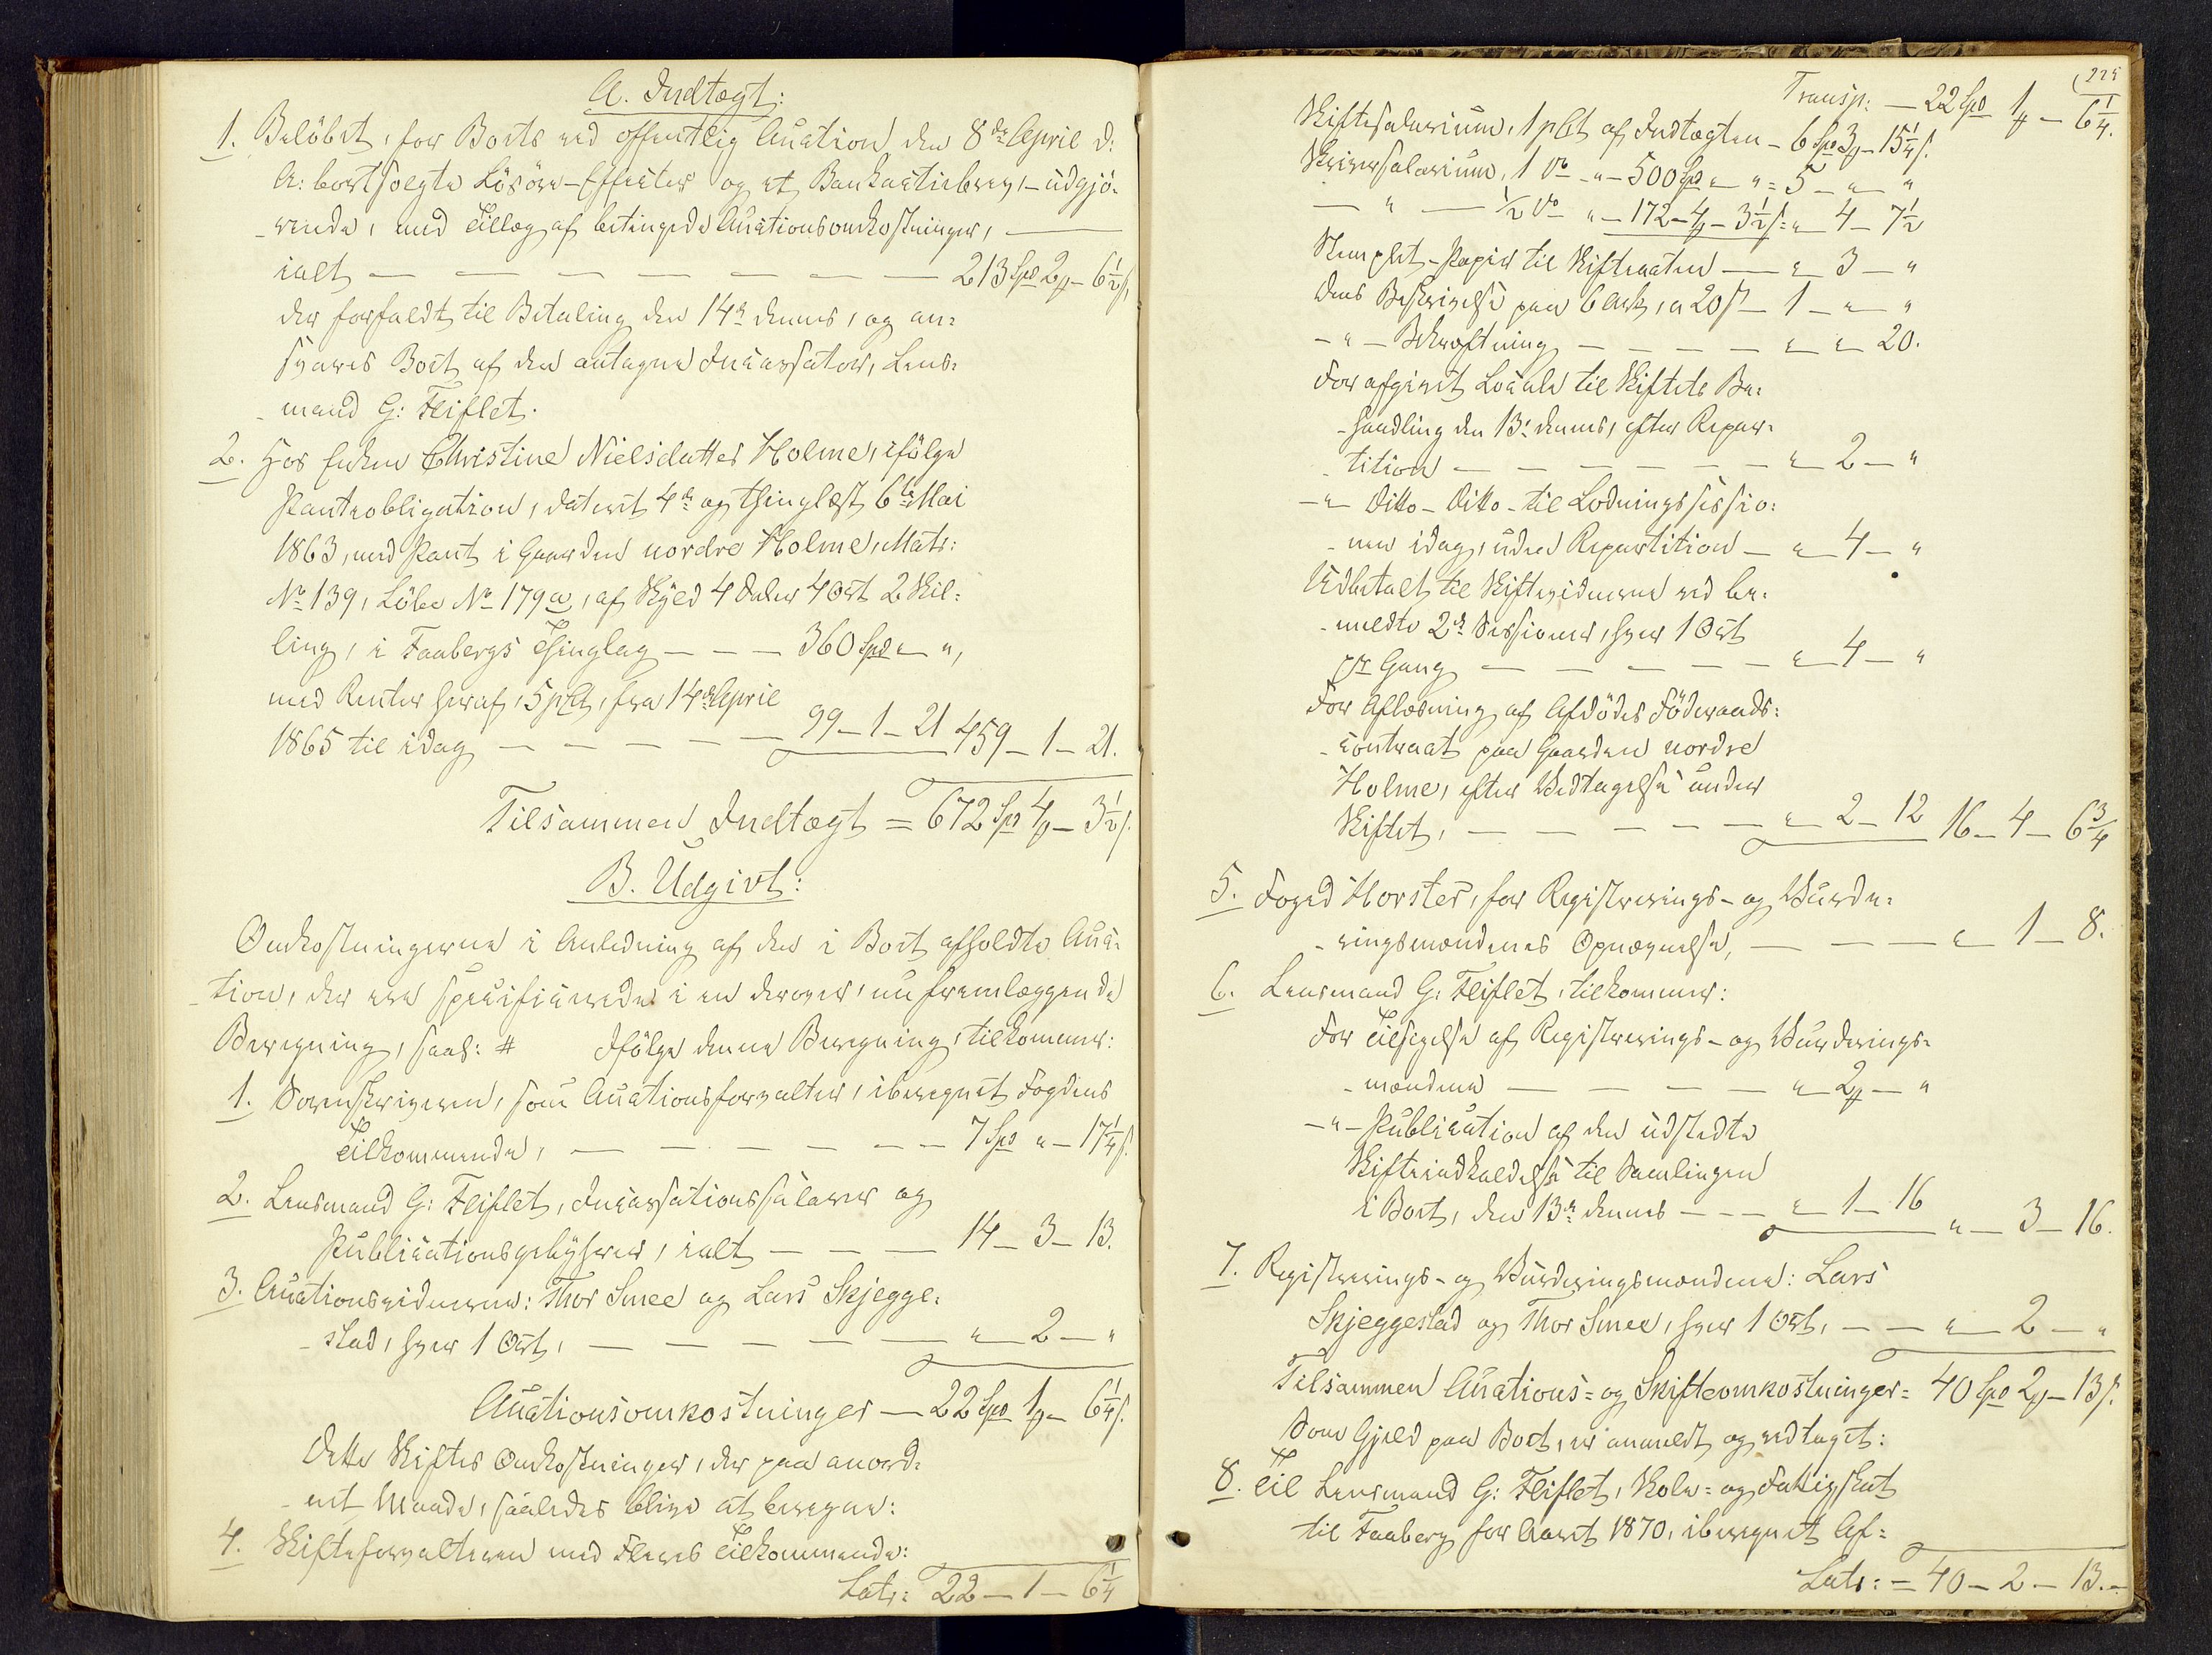 A. Indtægt:
1. Beløbet, for Boets ved offentlig Auction den 8de April d:
A: bortsolgte Løsøre-Effecter og et Bankactiebrev, - udgjø-
-rende, med Tillæg af betingede Auctionsomkostninger, —
ialt — — — — — — — 213 Spd 2 ƒ - 6 1/2 s.
der forfaldt til Betaling den 14de dennes, og an-
svares Boet af den antagne Incassator, Lens-
-mand G: Fliflet.
2. Hos Enken Christine Nielsdatter Holme, ifølge
Pantobligation, dateret 4de og thinglæst 6te Mai
1863, med Pant i Gaarden nordre Holme, Matr:
No 139, Løbe No 179a, af Skyld 4 Daler 4 Ort 2 Skil-
ling, i Faabergs Thinglag — — — 360 Spd " - ",
med Renter heraf, 5 pCt, fra 14de April
1865 til idag — — — — — 99 - 1 - 21 459 - 1 - 21.
Tilsammen Indtægt = 672 Spd 4 ƒ - 3 1/2 s.
B. Udgivt:
Omkostningerne i Anledning af den i Boet afholdte Auc-
-tion, der ere specificerede i en derover, nu fremlæggende
Beregning, saal: # Ifølge denne Beregning, tilkommer:
1. Sorenskriveren, som Auctionsforvalter, iberegnet Fogdens
Tilkommende, — — — — — 7 Spd " - 17 1/4 s.
2. Lensmand G: Fliflet, Incassationssalarer og
Publicationsgebyhrer, ialt — — — 14 - 3 - 13.
3. Auctionsvidnerne: Thor Smee og Lars Skjegge-
-stad, hver 1 Ort, — — — — — " - 2 - "
Auctionsomkostninger — 22 Spd 1 ƒ - 6 1/4 s.
Dette Skiftes Omkostninger, der paa anord-
-net Maade, saaledes blive at beregne:
4. Skifteforvalteren med Fleres Tilkommende:
Latr: 22 - 1 - 6 1/4
225
Transp: — 22 Spd 1 ƒ - 6 1/4.
Skiftesalarium, 1 pCt af Indtægten - 6 Spd 3 ƒ - 15 1/4 s.
Skriversalarium, 1 do - " - 500 Spd " - " = 5 - " - "
— " — 1/2 do " - 172 - 4 ƒ - 3 1/2 s = " - 4 - 7 1/2
Stemplet-Papir til Skifteacten — " - 3 - "
Dens Beskrivelse paa 6 Ark, a 20 s - 1 - " - "
- " - Bekræftning — — — — " - " - 20.
For afgivet Locale til Skiftets Be-
-handling den 13de dennes, efter Repar-
-tition — — — — — — " - 2 - "
- " - Ditto - Ditto - til Lodningssessio-
-nen idag, uden Repartition — " - 4 - "
Udbetalt til Skiftevidnerne ved be-
-meldte 2de Sessioner, hver 1 Ort
pr Gang — — — — — — " - 4 - "
For Aflæsning af Afdødes Føderaads-
-contract paa Gaarden nordre
Holme, efter Vedtagelse under
Skiftet, — — — — — " - 2 - 12 16 - 4 - 6 3/4
5. Foged Horster, for Registrerings- og Vurde-
-ringsmændenes Opnævnelse, — — — " - 1 - 8.
6. Lensmand G: Fliflet, tilkommer:
For Tilsigelse af Registrerings- og Vurderings-
-mændene — — — — " - 2 ƒ - "
- " - Publication af den udstedte
Skifteindkaldelse til Samlingen
i Boet, den 13de dennes — — — " - 1 - 16 " - 3 - 16.
7. Registrerings- og Vurderingsmændene: Lars
Skjeggestad og Thor Smee, hver 1 Ort, — — " - 2 - "
Tilsammen Auctions- og Skifteomkostninger = 40 Spd 2 ƒ - 13 s.
Som Gjæld paa Boet, er anmeldt og vedtaget:
8. Til Lensmand G: Fliflet, Skole- og Fattigskat
til Faaberg for Aaret 1870, iberegnet Af-
Latr: = 40 - 2 - 13. -